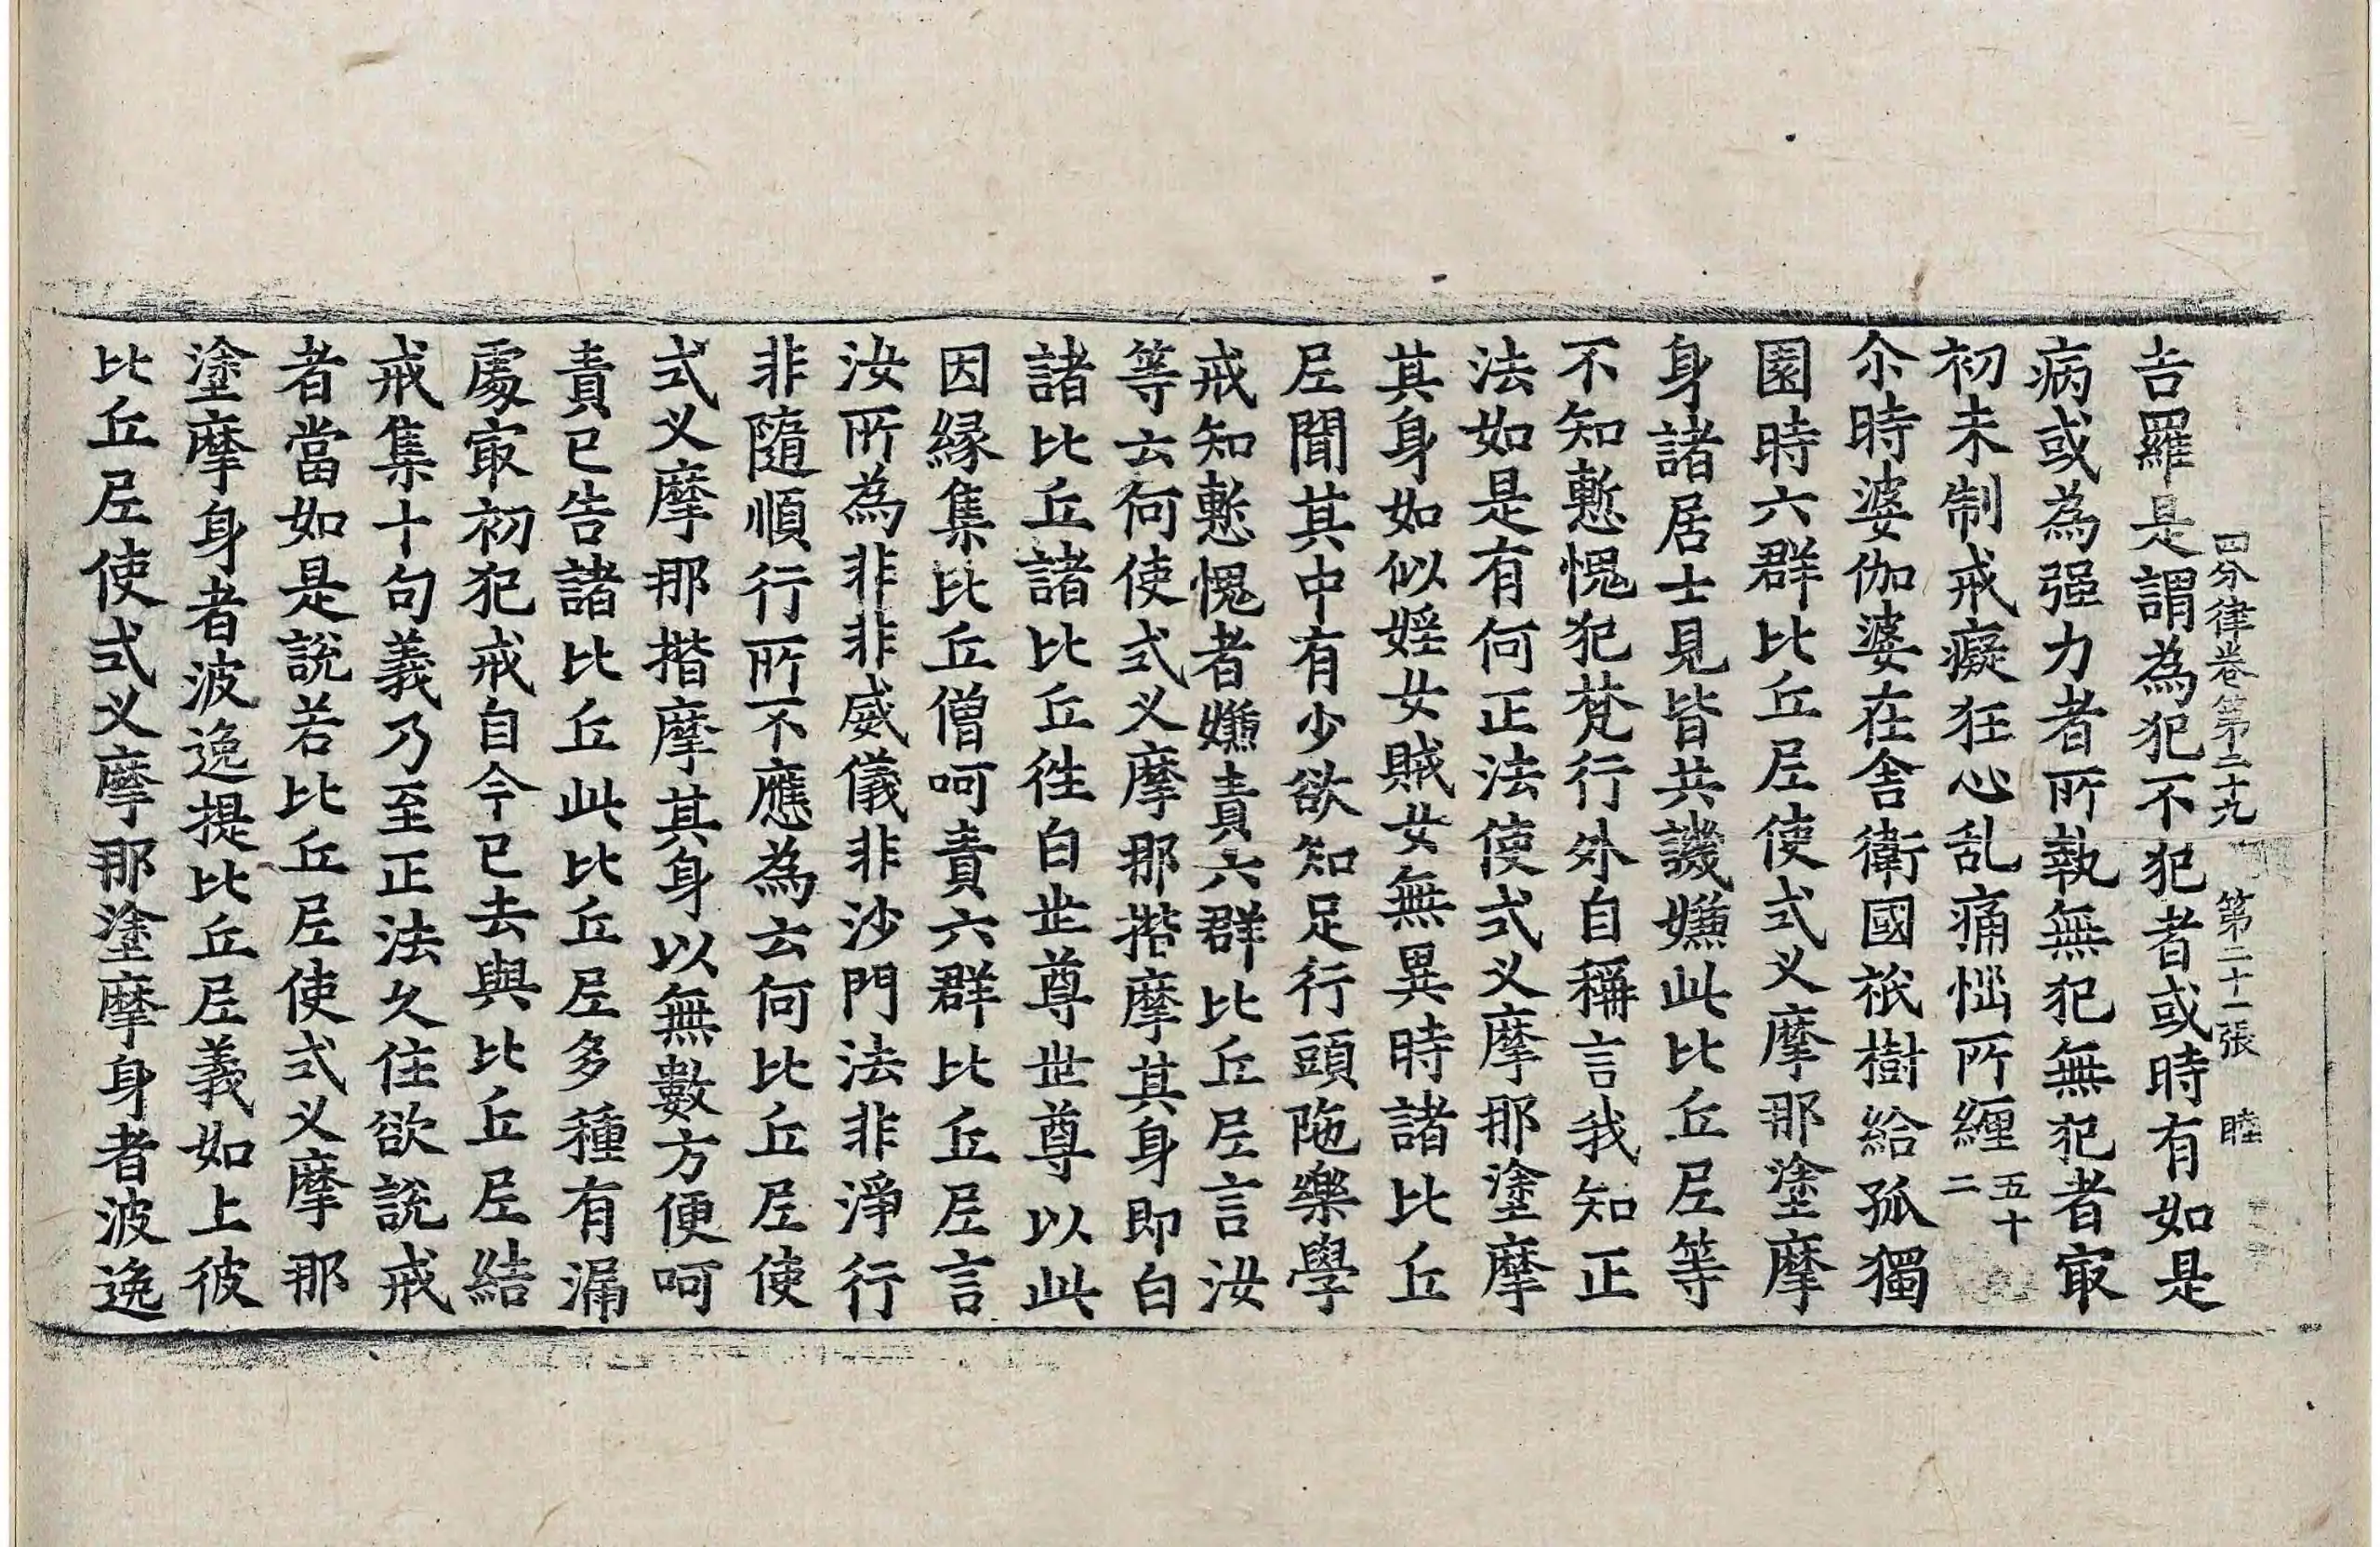 四分律卷第二十九 第二十一張 睦
吉羅是謂為犯不犯者或時有如是
病或為强力者所執無犯無犯者㝡
初未制戒癡狂心乱痛惱所纒五十二
尒時婆伽婆在舍衛國祇樹給孤獨
園時六群比丘尼使式叉摩那塗摩
身諸居士見皆共譏嫌此比丘尼等
不知慙愧犯梵行外自稱言我知正
法如是有何正法使式叉摩那塗摩
其身如似婬女賊女無異時諸比丘
尼聞其中有少欲知足行頭陁樂學
戒知慙愧者嫌責六群比丘尼言汝
等云何使式叉摩那揩摩其身即白
諸比丘諸比丘徃白世尊世尊以此
因緣集比丘僧呵責六群比丘尼言
汝所為非非威儀非沙門法非淨行
非隨順行所不應為云何比丘尼使
式叉摩那揩摩其身以無數方便呵
責已告諸比丘此比丘尼多種有漏
處㝡初犯戒自今已去與比丘尼結
戒集十句義乃至正法久住欲說戒
者當如是說若比丘尼使式叉摩那
塗摩身者波逸提比丘尼義如上彼
比丘尼使式叉摩那塗摩身者波逸